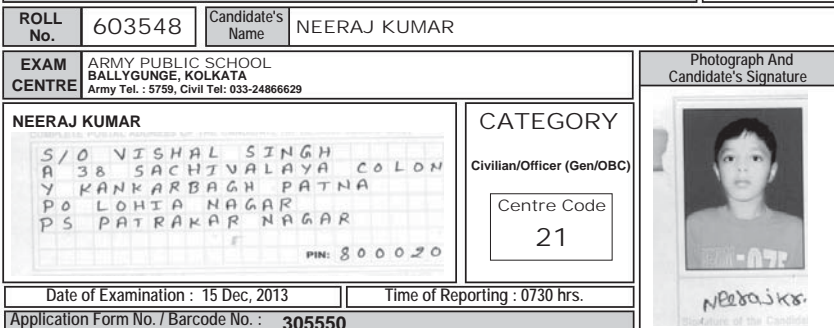 ROLL No. 603548 Candidate's Name NEERAJ KUMAR
EXAM CENTRE
ARMY PUBLIC SCHOOL
BALLYGUNGE, KOLKATA
Army Tel. : 5759, Civil Tel: 033-24866629
Photograph And
Candidate's Signature
NEERAJ KUMAR
S/O VISHAL SINGH
A 38 SACHIVALAYA COLON
Y KANKARBAGH PATNA
PO LOHIA NAGAR
PS PATRAKAR NAGAR
PIN: 800020
CATEGORY
Civilian/Officer (Gen/OBC)
Centre Code
21
Neerajkr.
Date of Examination : 15 Dec, 2013
Time of Reporting : 0730 hrs.
Application Form No. / Barcode No. : 305550